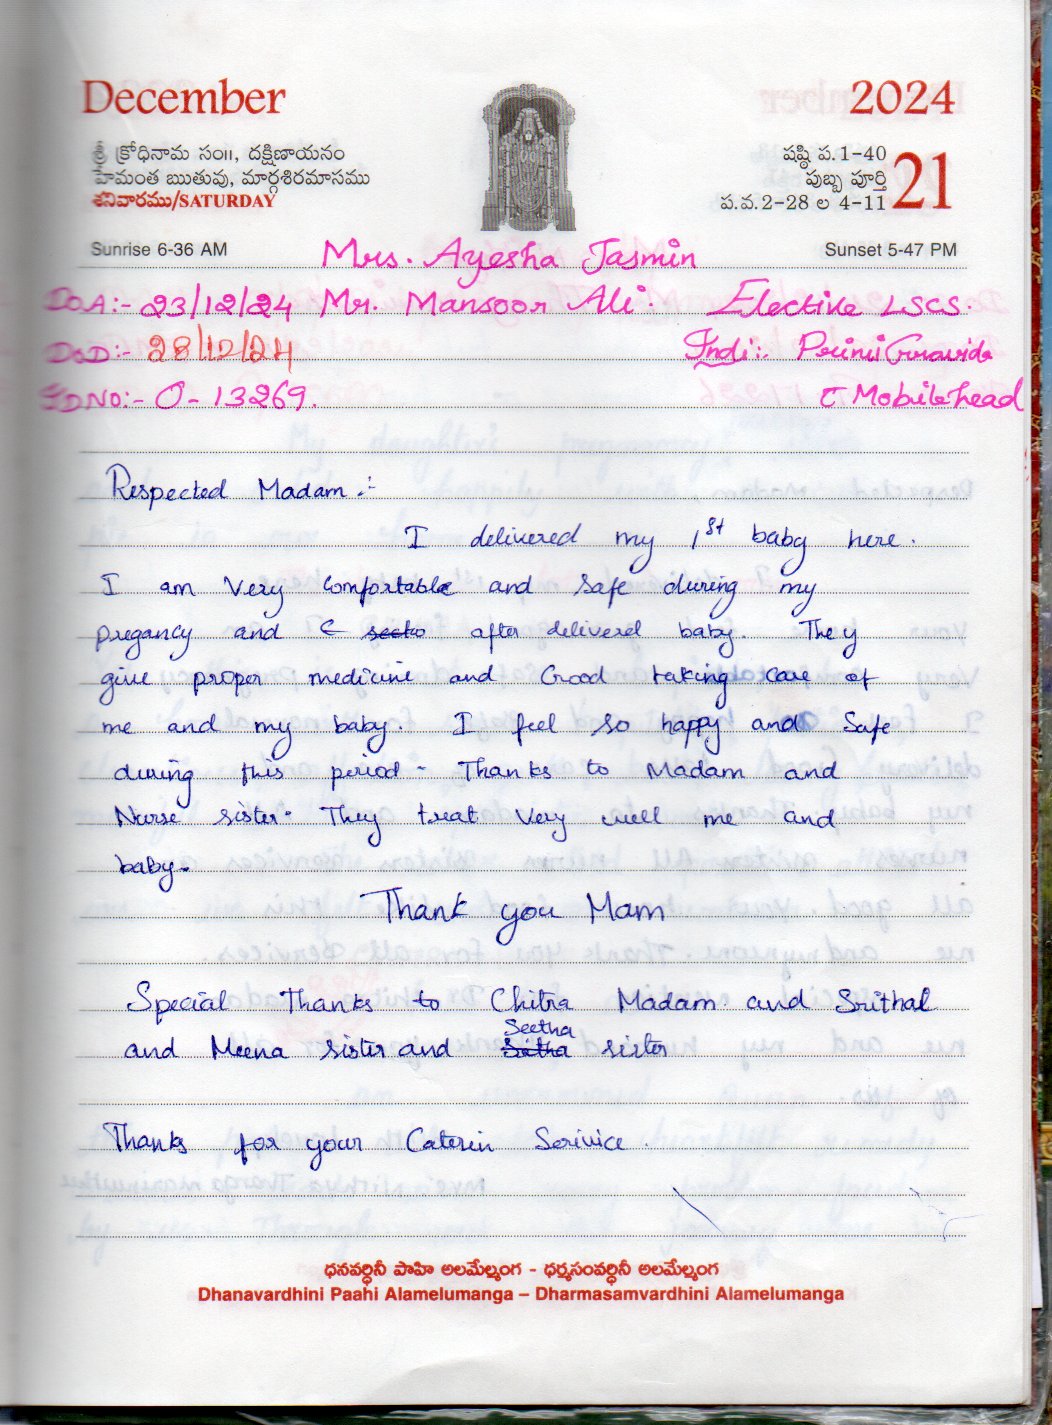 December 2024
శ్రీ క్రోధినామ సం॥, దక్షిణాయనం షష్ఠి ప.1-40
హేమంత ఋతువు, మార్గశిరమాసము పుబ్బ పూర్తి 21
శనివారము/SATURDAY ప.వ.2-28 ల 4-11
Sunrise 6-36 AM Sunset 5-47 PM
Mrs. Ayesha Jasmin
DOA:- 23/12/24 Mr. Mansoor Ali. Elective LSCS.
DOD:- 28/12/24 Indi:- PrimiGravida
IDNO:- O-13269. C Mobile head
Respected Madam :-
I delivered my 1st baby here.
I am Very Comfortable and Safe during my
pregancy and after delivered baby. They
give proper medicine and Good taking care of
me and my baby. I feel so happy and Safe
during this period. Thanks to Madam and
Nurse sister. They treat Very well me and
baby.
Thank you Mam
Special Thanks to Chitra Madam and Srithal
and Meena sister and Seetha sister
Thanks for your Caterin Serivice.
ధనవర్ధినీ పాహి అలమేల్మంగ - ధర్మసంవర్ధినీ అలమేల్మంగ
Dhanavardhini Paahi Alamelumanga – Dharmasamvardhini Alamelumanga